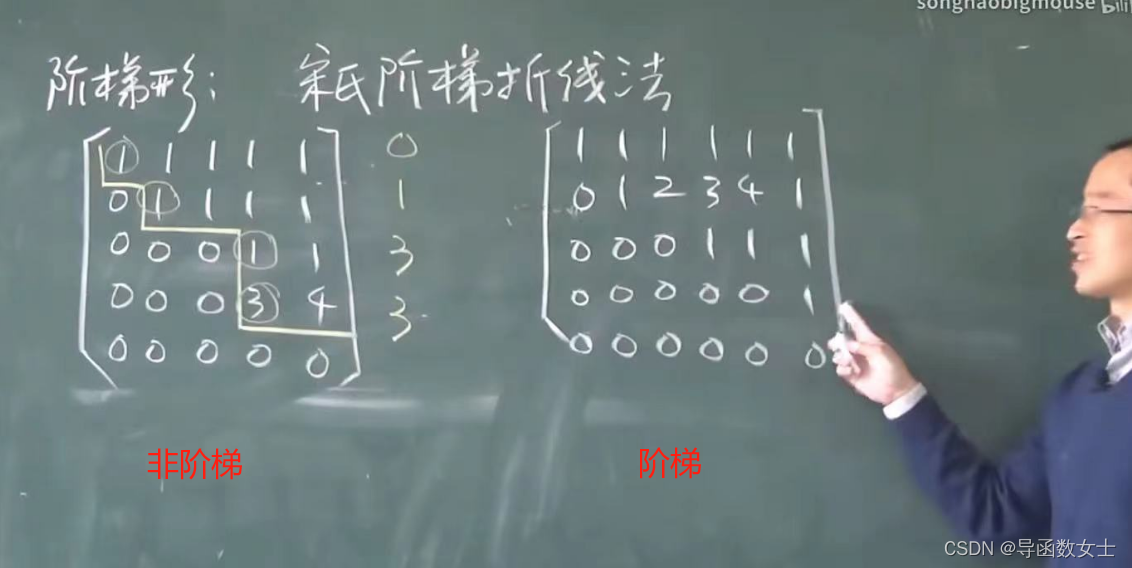 songhaobigmouse bili
阶梯形: 宋氏阶梯折线法
1 1 1 1 1 0
0 1 1 1 1 1
0 0 0 1 1 3
0 0 0 3 4 3
0 0 0 0 0
1 1 1 1 1 1
0 1 2 3 4 1
0 0 0 1 1 1
0 0 0 0 0 1
0 0 0 0 0 0
非阶梯
阶梯
CSDN @导函数女士